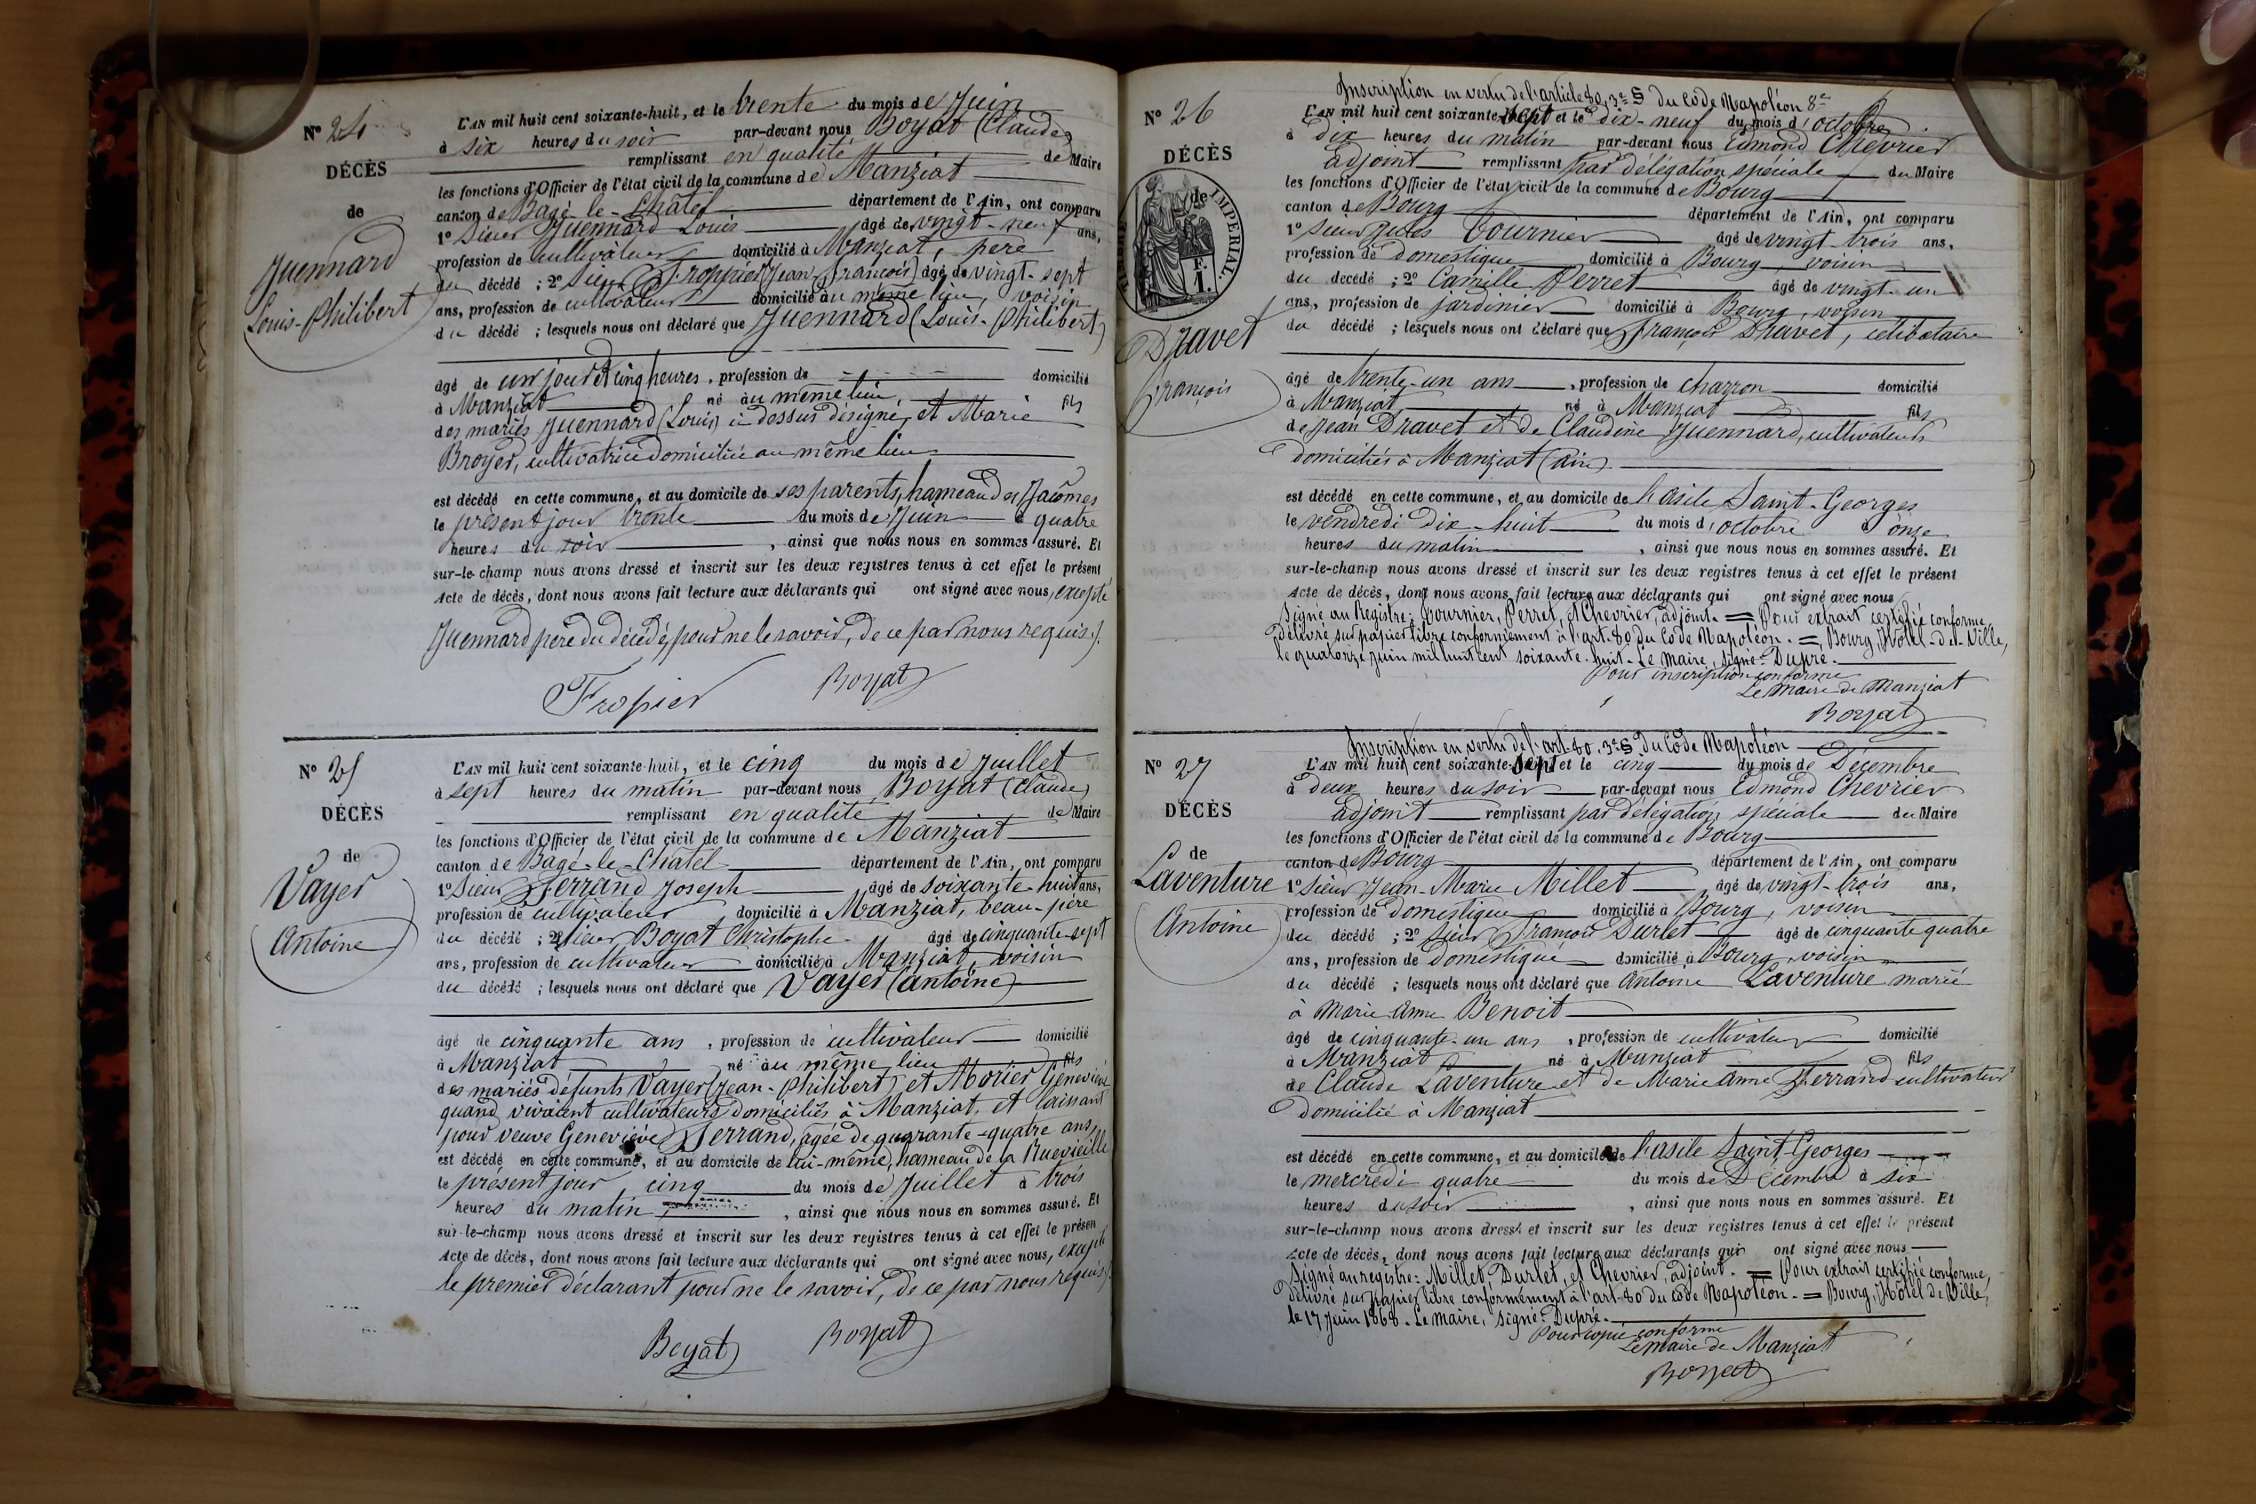 N° 24
DÉCÈS
de
Juennard
Louis-Philibert
L'AN mil huit cent soixante-huit, et le trente du mois de Juin
à six heures du soir par-devant nous Boyat (Claude)
remplissant en qualité de Maire
les fonctions d'Officier de l'état civil de la commune de Manziat
canton de Bagé-le-Châtel département de l'Ain, ont comparu
1° Sieur Juennard Louis âgé de vingt-neuf ans,
profession de cultivateur domicilié à Manziat, père
du décédé ; 2° Sieur Froppier (Jean François) âgé de vingt-sept
ans, profession de cultivateur domicilié au même lieu, voisin
du décédé ; lesquels nous ont déclaré que Juennard (Louis-Philibert)
âgé de un jour et cinq heures, profession de domicilié
à Manziat né au même lieu, fils
des mariés Juennard (Louis) ci-dessus désigné, et Marie
Broyer, cultivatrice domiciliée au même lieu
est décédé en cette commune, et au domicile de ses parents, hameau des Jaômes
le présent jour trente du mois de Juin à quatre
heures du soir, ainsi que nous nous en sommes assuré. Et
sur-le-champ nous avons dressé et inscrit sur les deux registres tenus à cet effet le présent
Acte de décès, dont nous avons fait lecture aux déclarants qui ont signé avec nous, excepté
Juennard père du décédé, pour ne le savoir, de ce par nous requis.
Fropier Boyat
N° 25
DÉCÈS
de
Vayer
Antoine
L'AN mil huit cent soixante-huit, et le cinq du mois de Juillet
à sept heures du matin par-devant nous Boyat (Claude)
remplissant en qualité de Maire
les fonctions d'Officier de l'état civil de la commune de Manziat
canton de Bagé-le-Châtel département de l'Ain, ont comparu
1° Sieur Ferrand Joseph âgé de soixante-huit ans,
profession de cultivateur domicilié à Manziat, beau-père
du décédé ; 2° Sieur Boyat Christophe âgé de cinquante-sept
ans, profession de cultivateur domicilié à Manziat, voisin
du décédé ; lesquels nous ont déclaré que Vayer (Antoine)
âgé de cinquante ans, profession de cultivateur domicilié
à Manziat né au même lieu fils
des mariés défunts Vayer (Jean-Philibert) et Morier Geneviève
quand vivaient cultivateurs domiciliés à Manziat, et laissant
pour veuve Geneviève Ferrand, âgée de quarante-quatre ans,
est décédé en cette commune, et au domicile de lui-même, hameau de la Ruevieille
le présent jour cinq du mois de Juillet à trois
heures du matin, ainsi que nous nous en sommes assuré. Et
sur-le-champ nous avons dressé et inscrit sur les deux registres tenus à cet effet le présent
Acte de décès, dont nous avons fait lecture aux déclarants qui ont signé avec nous, excepté
le premier déclarant pour ne le savoir, de ce par nous requis.
Boyat Boyat
N° 26
DÉCÈS
de
IMPÉRIAL.
TIMBRE
F.
1.
Dravet
François
Inscription en vertu de l'article 80, 3e § du Code Napoléon
L'AN mil huit cent soixante-sept et le dix-neuf du mois d'octobre
à dix heures du matin par-devant nous Edmond Chevrier
adjoint remplissant par délégation spéciale du Maire
les fonctions d'Officier de l'état civil de la commune de Bourg
canton de Bourg département de l'Ain, ont comparu
1° Sieur Jules Tournier âgé de vingt-trois ans,
profession de domestique domicilié à Bourg, voisin
du décédé ; 2° Camille Perret âgé de vingt-un
ans, profession de jardinier domicilié à Bourg, voisin
du décédé ; lesquels nous ont déclaré que François Dravet, célibataire
âgé de trente-un ans, profession de charron domicilié
à Manziat né à Manziat fils
de Jean Dravet et de Claudine Juennard, cultivateurs
domiciliés à Manziat (Ain).
est décédé en cette commune, et au domicile de l'asile Saint-Georges
le vendredi dix-huit du mois d'octobre à onze
heures du matin, ainsi que nous nous en sommes assuré. Et
sur-le-champ nous avons dressé et inscrit sur les deux registres tenus à cet effet le présent
Acte de décès, dont nous avons fait lecture aux déclarants qui ont signé avec nous
Signé au Registre : Tournier, Perret, et Chevrier, adjoint. = Pour extrait certifié conforme,
délivré sur papier libre conformément à l'art. 80 du Code Napoléon. = Bourg, Hôtel-de-Ville,
le quatorze juin mil huit cent soixante-huit. Le Maire, signé : Dupré.
Pour inscription conforme
Le Maire de Manziat
Boyat
N° 27
DÉCÈS
de
Laventure
Antoine
Inscription en vertu de l'art. 80, 3e § du Code Napoléon
L'AN mil huit cent soixante-sept et le cinq du mois de Décembre
à deux heures du soir par-devant nous Edmond Chevrier
adjoint remplissant par délégation spéciale du Maire
les fonctions d'Officier de l'état civil de la commune de Bourg
canton de Bourg département de l'Ain, ont comparu
1° Sieur Jean-Marie Millet âgé de vingt-trois ans,
profession de domestique domicilié à Bourg, voisin
du décédé ; 2° Sieur François Durlet âgé de cinquante quatre
ans, profession de Domestique domicilié à Bourg, voisin
du décédé ; lesquels nous ont déclaré que Antoine Laventure marié
à Marie Anne Benoit
âgé de cinquante-un ans, profession de cultivateur domicilié
à Manziat né à Manziat fils
de Claude Laventure et de Marie Anne Ferrand cultivateur
domicilié à Manziat
est décédé en cette commune, et au domicile de l'asile Saint-Georges
le mercredi quatre du mois de Décembre à six
heures du soir, ainsi que nous nous en sommes assuré. Et
sur-le-champ nous avons dressé et inscrit sur les deux registres tenus à cet effet le présent
Acte de décès, dont nous avons fait lecture aux déclarants qui ont signé avec nous
Signé au registre : Millet, Durlet, et Chevrier, adjoint. = Pour extrait certifié conforme,
délivré sur papier libre conformément à l'art. 80 du Code Napoléon. = Bourg, Hôtel de Ville,
le 17 juin 1868. Le Maire, signé : Dupré.
Pour copie conforme
Le Maire de Manziat
Boyat